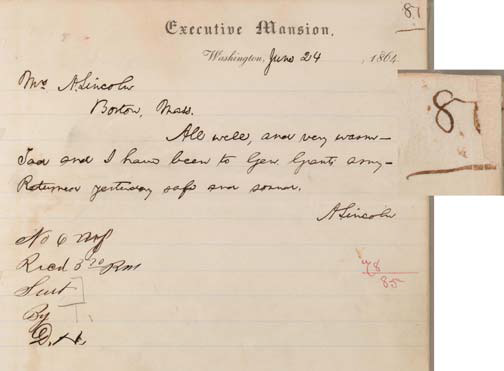 87
Executive Mansion,
Washington, June 24, 1864
Mrs A. Lincoln
Boston, Mass.
All well, and very warm—
Tad and I have been to Gen. Grants army—
Returned yesterday safe and sound.
A Lincoln
87
No 6
Recd
Sent
By
D. H.
85